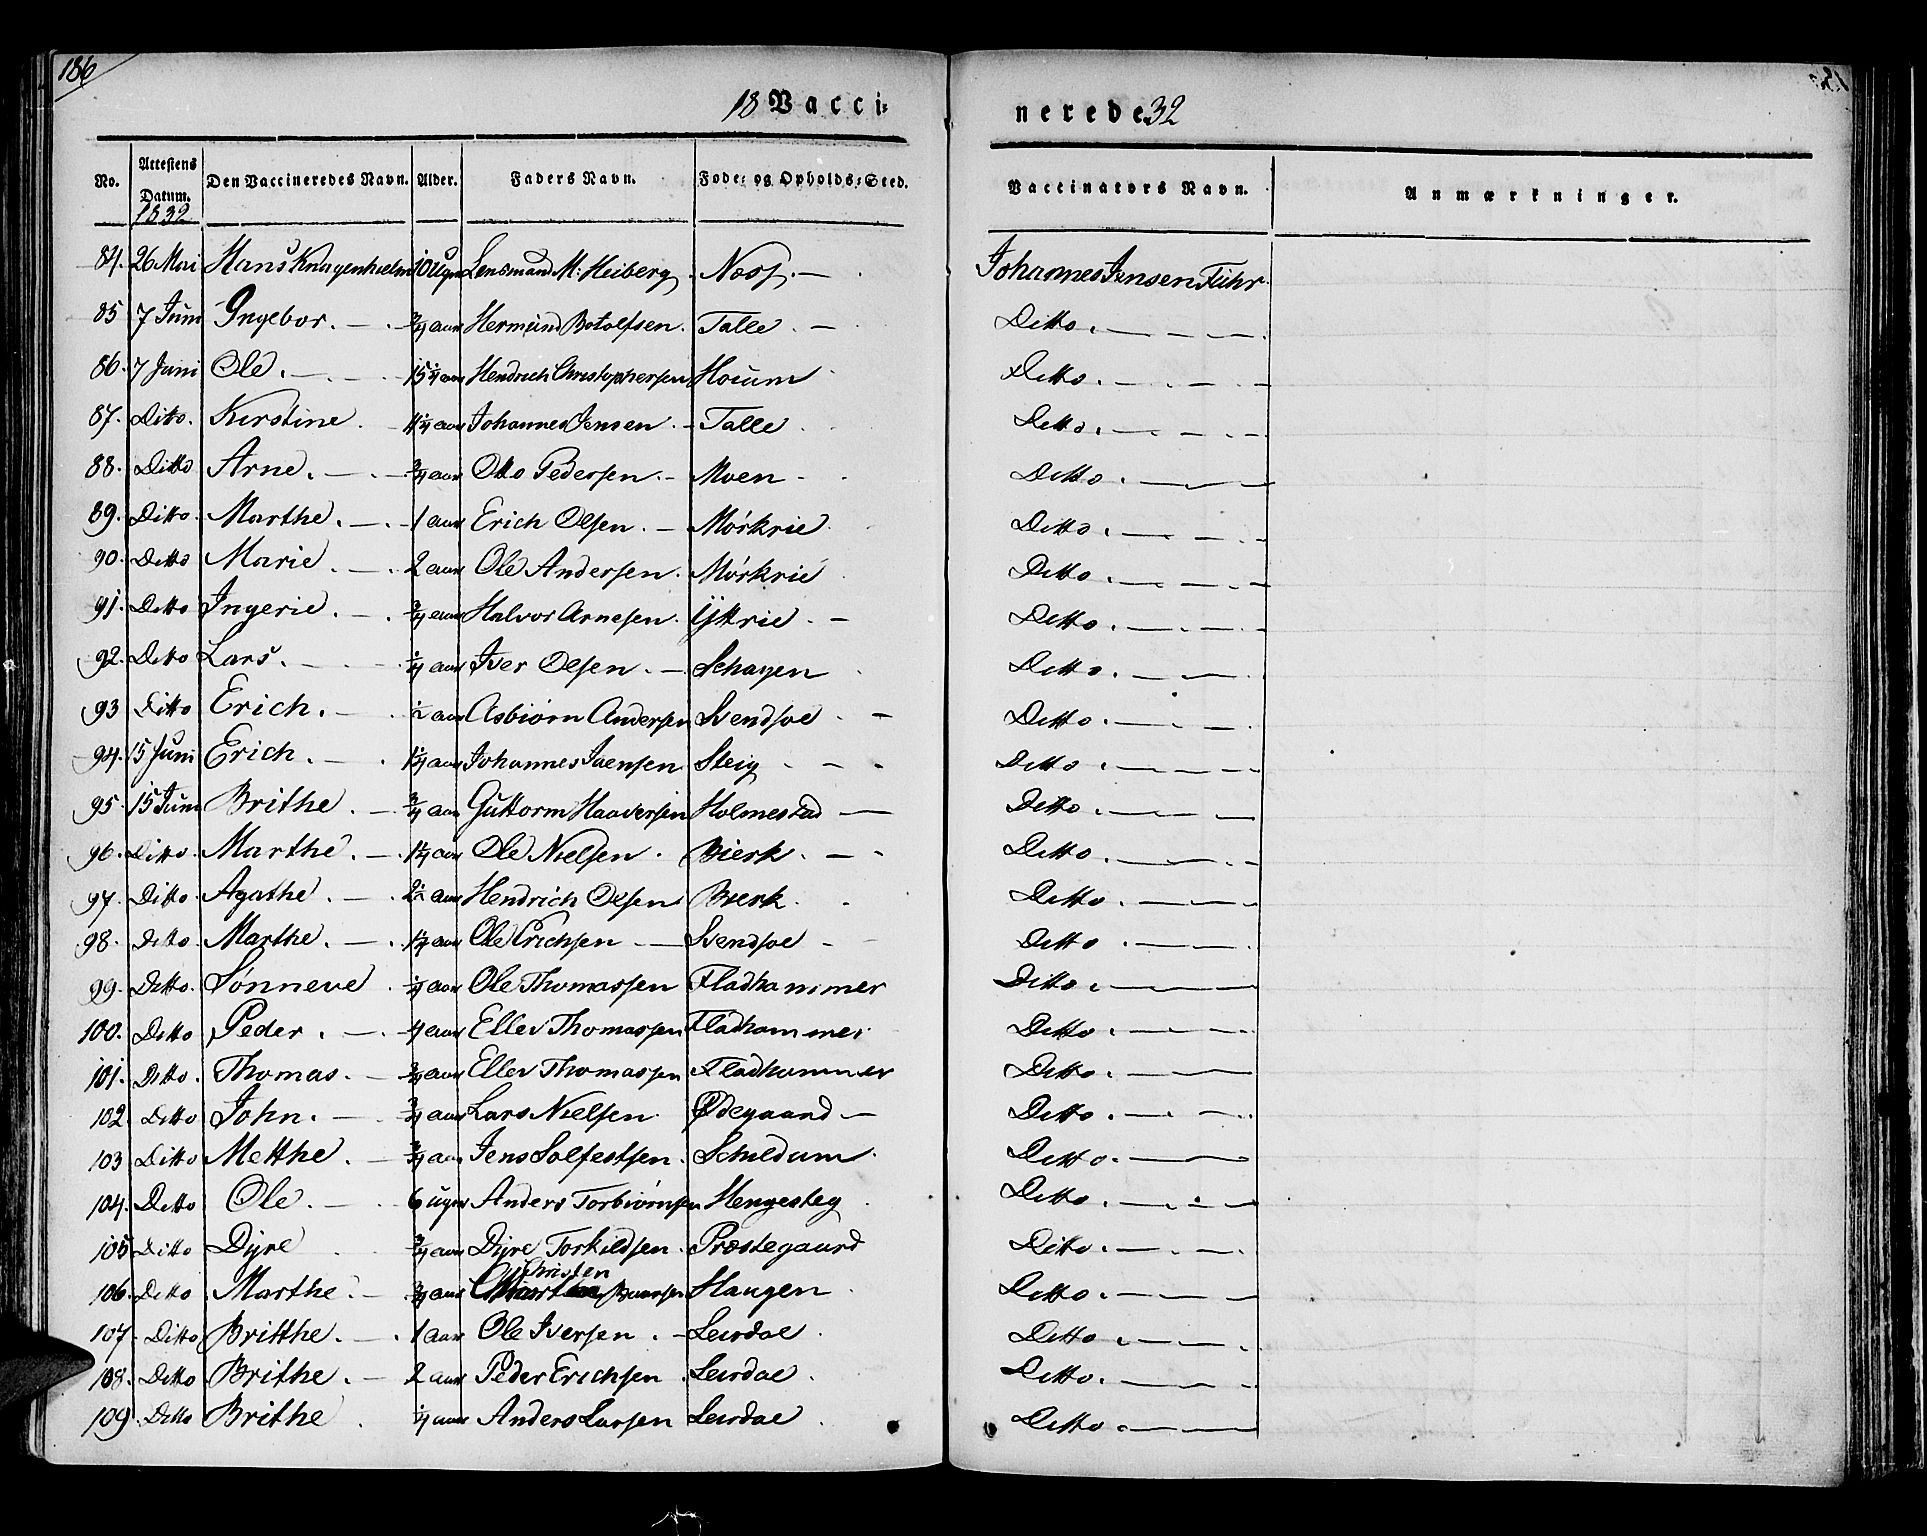 186
18 Vacci-
nerede 32
No. Attestens Datum. Den Vaccineredes Navn. Alder. Faders Navn. Føde- og Opholds-Sted. Vaccinators Navn. Anmærkninger.
1832
84. 26 Mai Hans Knagenhielm 10 Uger Lensmand M: Heiberg. Næss. — Johannes Jensen Fuhr.
85 7 Juni Ingebor. — 3/4 aar Hermund Botolfsen. Talle. — Ditto. — — —
86. 7 Juni Ole. — 15 1/4 aar Hendrich Christophersen Houm Ditto. — — —
87. Ditto. Kirstine. 4 1/4 aar Johannes Jensen. — Talle. Ditto. — — —
88. Ditto Arne. — 3/4 aar Otto Pedersen. — Moen Ditto. — —
89. Ditto. Marthe. — 1 aar Erich Olsen. — Mørkrie Ditto. — — —
90. Ditto Marie. — 2 aar Ole Andersen. Mørkrie Ditto. — — —
91. Ditto Ingerie. — 3/4 aar Halvor Arnesen. Yttrie. — Ditto. — — —
92. Ditto Lars. — 1/4 aar Iver Olsen. — Schagen Ditto. — — —
93 Ditto Erich. — 1/2 aar Asbiørn Andersen Svendsøe. — Ditto. — — —
94. 15 Juni Erich. — 1 1/4 aar Johannes Iversen Steig — — Ditto. — — —
95. 15 Juni Brithe. — 3/4 aar Guttorm Haaversen Holmestad — Ditto. — — —
96. Ditto. Marthe. — 1 1/4 aar Ole Nielsen. Bierk. — Ditto. — — —
97. Ditto. Agathe. — 2 1/2 aar Hendrich Olsen Bierk. Ditto. — — —
98. Ditto. Marthe. — 1 1/4 aar Ole Erichsen — Svendsøe — Ditto. — — —
99. Ditto. Sønneve. 1/4 aar Ole Thomassen Fladhammer Ditto. — — —
100. Ditto Peder. — 4 aar Eller Thomassen Fladhammer Ditto. — — —
101. Ditto. Thomas. — 3/4 aar Eller Thomassen Fladhammer Ditto. — — —
102. Ditto John. — 3/4 aar Lars Nielsen. Ødegaard — Ditto. — — —
103 Ditto Metthe. — 3/4 aar Jens Solfestsen. Schildum. Ditto. — —
104. Ditto Ole. — 6 uger Anders Torbiørnsen Hengesteg Ditto. — — —
105 Ditto Dyre 3/4 aar Dyre Torkildsen. Præstegaard Ditto. — — —
106. Ditto Marthe. — 3/4 aar Christen Haugen Ditto. — — —
107. Ditto Britthe. — 1 aar Ole Iversen. — Leirdal. Ditto. — — —
108. Ditto Brithe. — 2 aar Peder Erichsen. Leirdal. Ditto. — — —
109 Ditto Brithe. 1/4 aar Anders Larsen Leirdal. Ditto. — — —